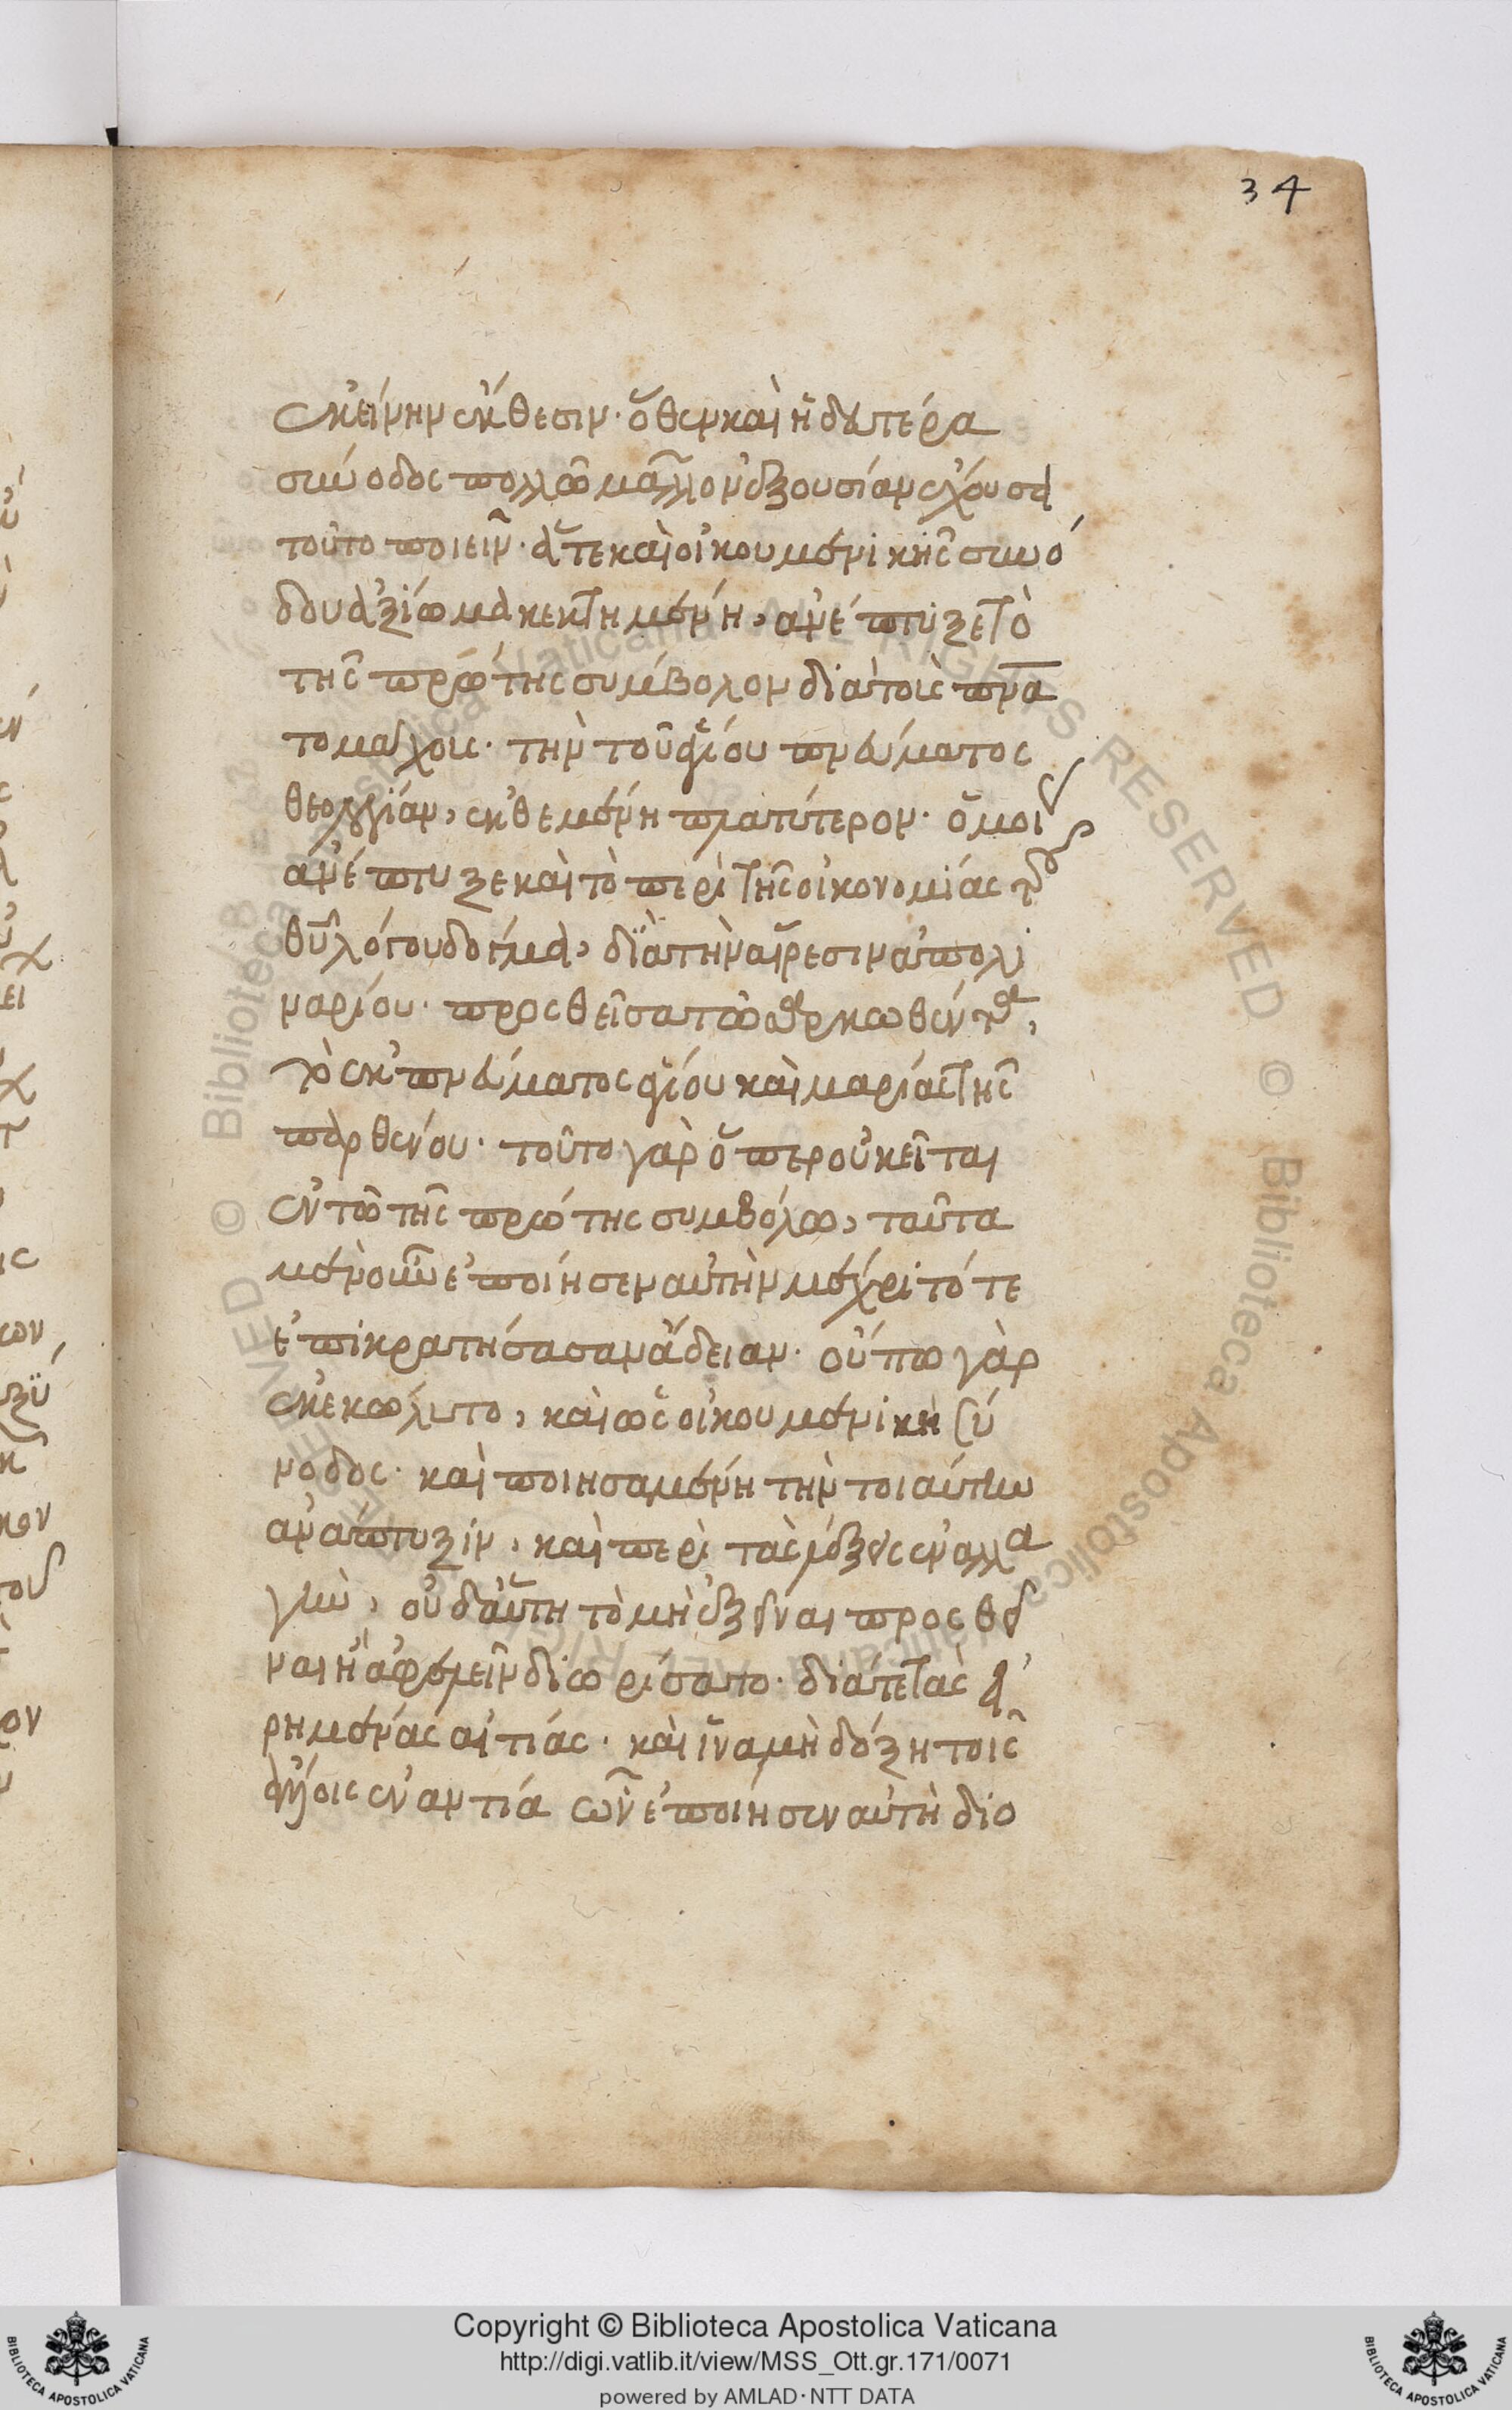 34
ἐκείνην ἔκθεσιν· ὅθεν καὶ ἡ δευτέρα
σύνοδος πολλῶ μᾶλλον ἐξουσίαν ἔχουσα
τοῦτο ποιεῖν· ἅτε καὶ οἰκουμενικῆς συνό
δου ἀξίωμα κεκτημένη, ἀνέπτυξε τὸ
τῆς πρώτης σύμβολον διὰ τοὺς πνα
τομάχους· τὴν τοῦ ἁγίου πνεύματος
θεολογίαν, ἐκθεμένη πλατύτερον· ὁμοί
ἀνέπτυξε καὶ τὸ περὶ τῆς οἰκονομίας τοῦ
θυ λόγου δόγμα, διὰ τὴν αἵρεσιν ἀπολι
ναρίου· προσθεῖσα τῶ σαρκωθέντα,
τὸ ἐκ πνεύματος ἁγίου καὶ μαρίας τῆς
παρθένου· τοῦτο γὰρ ὅπερ οὐ κεῖται
ἐν τῶ τῆς πρώτης συμβόλω, ταῦτα
μὲν οὖν ἐποίησεν αὐτὴν μέχρι τότε
ἐπικρατήσασαν ἄδειαν· οὔπω γὰρ
ἐκεκώλυτο, καὶ ὡς οἰκουμενικὴ σύ
νοδος· καὶ ποιησαμένη τὴν τοιαύτην
ἀνάπτυξιν, καὶ περὶ τὰς λέξεις ἐναλλα
γὴν, οὐδ αὕτη τὸ μὴ ἐξεῖναι προσθεῖ
ναι ἢ ἀφελεῖν διωρίσατο· διά τε τὰς εἰ
ρημένας αἰτίας· καὶ ἵνα μὴ δόξη τοῖς
ἄλλοις ἐναντία ὧν ἐποίησεν αὐτὴ διο
Copyright © Biblioteca Apostolica Vaticana
http://digi.vatlib.it/view/MSS_Ott.gr.171/0071
powered by AMLAD·NTT DATA